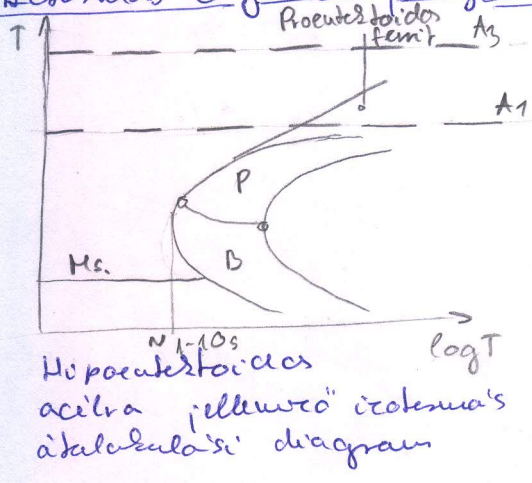 T
Proeutektoidos
ferrit
A3
A1
P
B
Ms.
~ 1-10s
logT
Hipoeutektoidos
acélra jellemző izotermás
átalakulási diagram